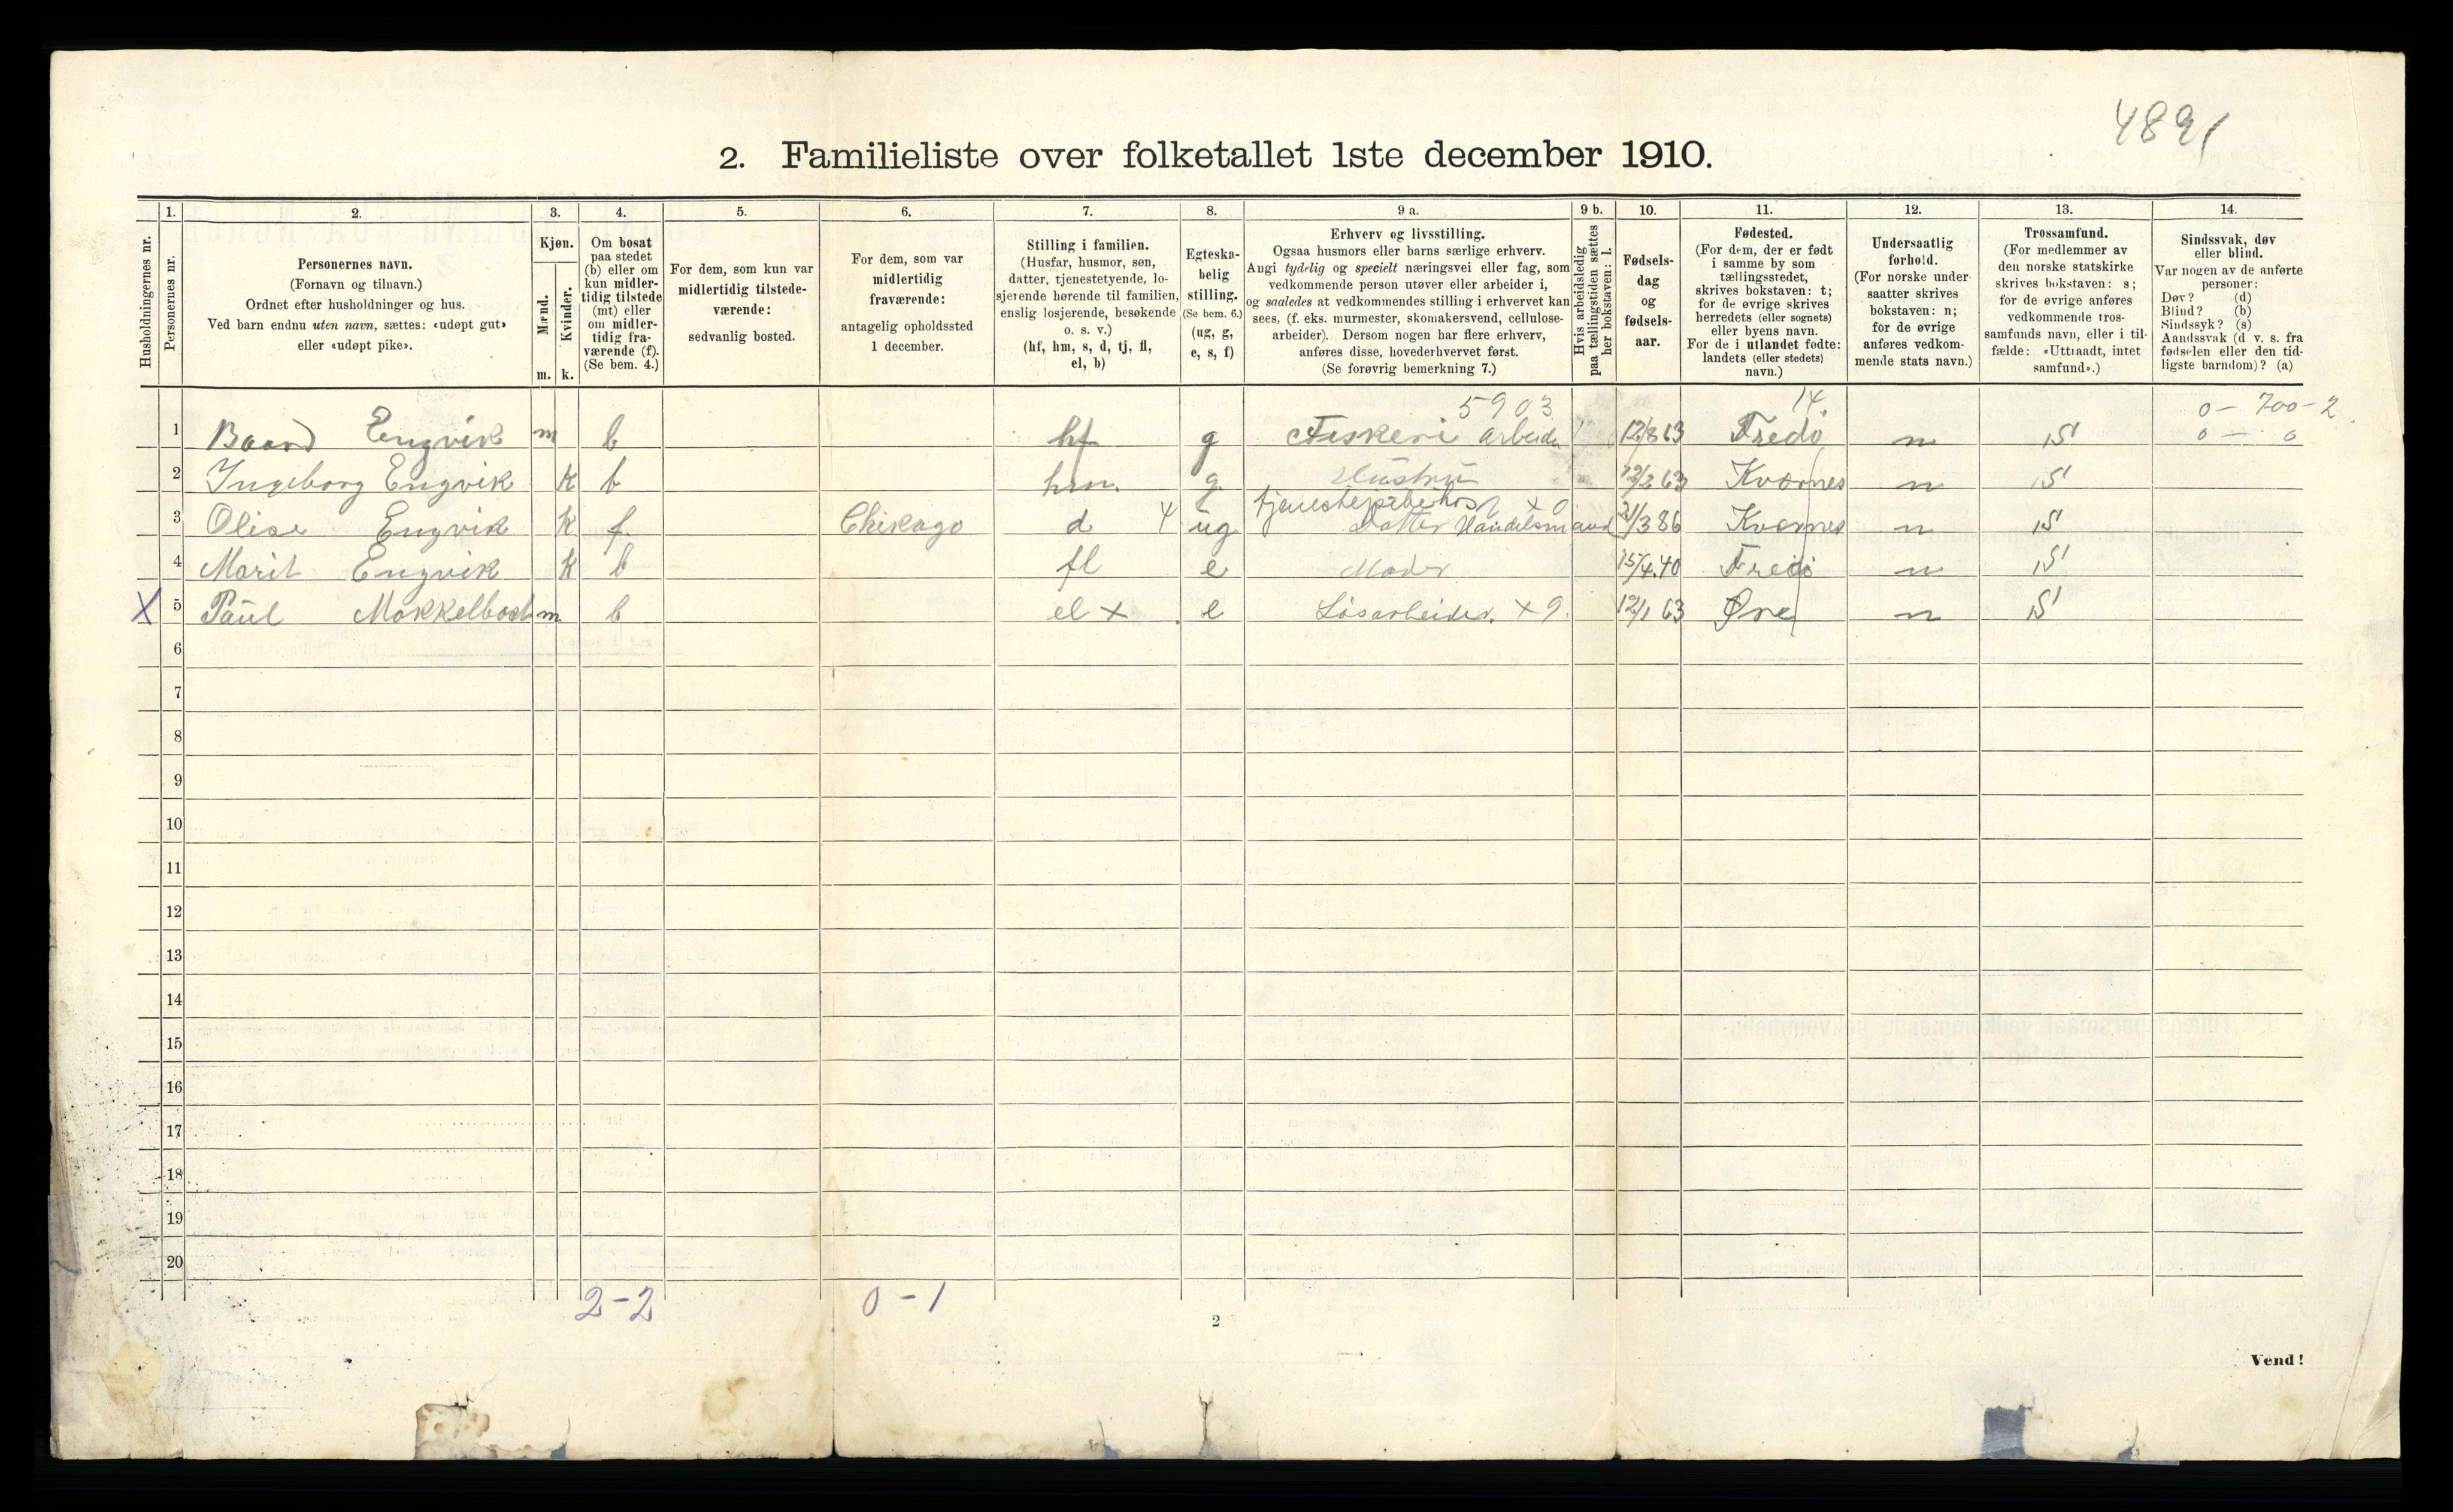 4891
2. Familieliste over folketallet 1ste december 1910.
Husholdningernes nr.
1.
Personernes nr.
2.
Personernes navn.
(Fornavn og tilnavn.)
Ordnet efter husholdninger og hus.
Ved barn endnu uten navn, sættes: «udøpt gut»
eller «udøpt pike».
3.
Kjøn.
Mænd.
Kvinder.
m. k.
4.
Om bosat
paa stedet
(b) eller om
kun midler-
tidig tilstede
(mt) eller
om midler-
tidig fra-
værende (f).
(Se bem. 4.)
5.
For dem, som kun var
midlertidig tilstede-
værende:
sedvanlig bosted.
6.
For dem, som var
midlertidig
fraværende:
antagelig opholdssted
1 december.
7.
Stilling i familien.
(Husfar, husmor, søn,
datter, tjenestetyende, lo-
sjerende hørende til familien,
enslig losjerende, besøkende
o. s. v.)
(hf, hm, s, d, tj, fl,
el, b)
8.
Egteska-
belig
stilling.
(Se bem. 6.)
(ug, g,
e, s, f)
9 a.
Erhverv og livsstilling.
Ogsaa husmors eller barns særlige erhverv.
Angi tydelig og specielt næringsvei eller fag, som
vedkommende person utøver eller arbeider i,
og saaledes at vedkommendes stilling i erhvervet kan
sees, (f. eks. murmester, skomakersvend, cellulose-
arbeider). Dersom nogen har flere erhverv,
anføres disse, hovederhvervet først.
(Se forøvrig bemerkning 7.)
9 b.
Hvis arbeidsledig
paa tællingstiden sættes
her bokstaven: l.
10.
Fødsels-
dag
og
fødsels-
aar.
11.
Fødested.
(For dem, der er født
i samme by som
tællingsstedet,
skrives bokstaven: t;
for de øvrige skrives
herredets (eller sognets)
eller byens navn.
For de i utlandet fødte:
landets (eller stedets)
navn.)
12.
Undersaatlig
forhold.
(For norske under-
saatter skrives
bokstaven: n;
for de øvrige
anføres vedkom-
mende stats navn.)
13.
Trossamfund.
(For medlemmer av
den norske statskirke
skrives bokstaven: s;
for de øvrige anføres
vedkommende tros-
samfunds navn, eller i til-
fælde: «Uttraadt, intet
samfund».)
14.
Sindssvak, døv
eller blind.
Var nogen av de anførte
personer:
Døv? (d)
Blind? (b)
Sindssyk? (s)
Aandssvak (d v. s. fra
fødselen eller den tid-
ligste barndom)? (a)
5903 14. 0 - 700 - 2
1 Baard Engvik m b hf g Fiskeri arbeider 12/8 63 Fredö n S 0 - 0
2 Ingeborg Engvik K b hm. g Hustru 12/2 63 Kværnes n S
tjenestepike hos x 0
3 Olise Engvik K f. Chikago d 4 ug Datter Handelsmand 21/3 86 Kværnes n S
4 Marit Engvik K b fl e Moder 15/4.40 Fredö n S
X 5 Paul Mokkelbost m b el x e Løsarbeider. x 9. 12/1 63 Øre n S
6
7
8
9
10
11
12
13
14
15
16
17
18
19
20
2-2 0-1
2
Vend!